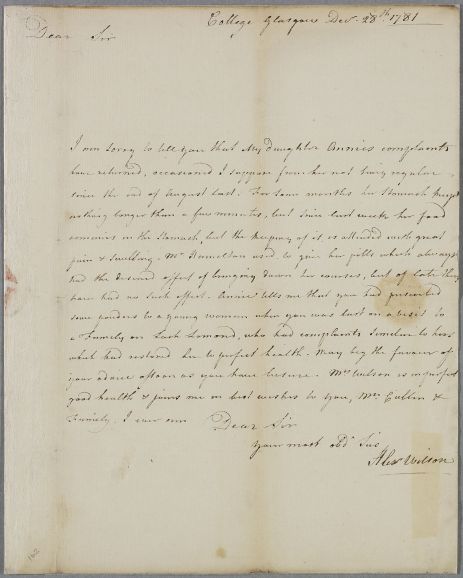 College Glasgow Decr. 28th 1781
Dear Sir
I am sorry to tell you that My daughter Annies complaints
have returned, occasioned I suppose from her not being regular
since the end of August last. For some months her Stomach keeps
nothing longer than a few minutes, but since last week her food
remains in the Stomach, but the keeping of it, is attended with great
pain & swelling. Mr Hamilton used to give her pills which always
had the desired effect of bringing down her courses, but of late they
have had no such effect. Annie tells me that you had prescribed
some powders to a young woman when you was last on a visit to
a Family on Loch Lomond, who had complaints similar to hers
which had restored her to perfect health. May beg the favour of
your advice as soon as you have leisure. Mrs Wilson is in perfect
good health & joins me in best wishes to you, Mrs Cullen &
Family, I ever am Dear Sir
Your most obd.t Ser.
Alexr Wilson
162